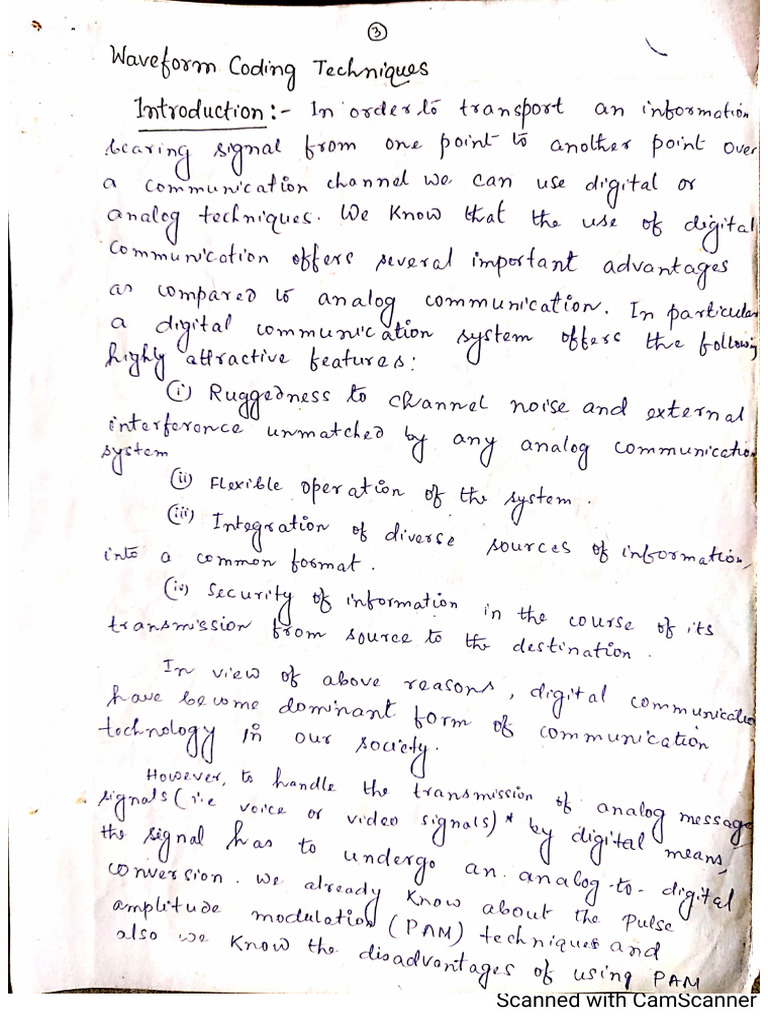 3
Waveform Coding Techniques
Introduction :- In order to transport an information
bearing signal from one point to another point over
a communication channel we can use digital or
analog techniques. We know that the use of digital
communication offers several important advantages
as compared to analog communication. In particular
a digital communication system offers the following
highly attractive features:
(i) Ruggedness to channel noise and external
interference unmatched by any analog communication
system
(ii) Flexible operation of the system.
(iii) Integration of diverse sources of information,
into a common format.
(iv) Security of information in the course of its
transmission from source to the destination.
In view of above reasons, digital communication
have become dominant form of communication
technology in our society.
However, to handle the transmission of analog message
signals (i.e voice or video signals)* by digital means,
the signal has to undergo an analog-to-digital
conversion. We already know about the Pulse
amplitude modulation (PAM) techniques and
also we know the disadvantages of using PAM
Scanned with CamScanner